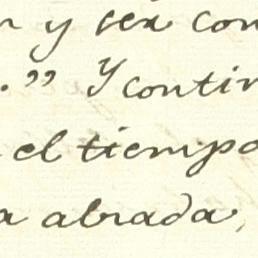 y ser con
." Y contin
el tiempo
a abrada,